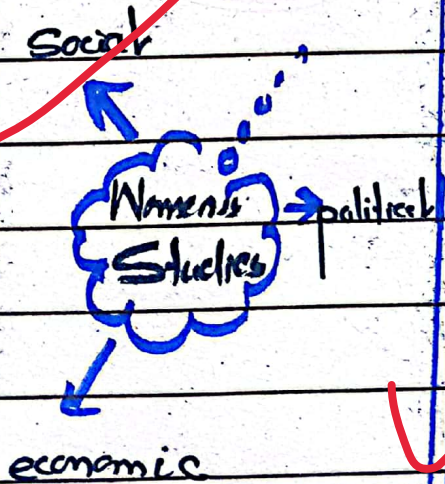 Social
Women's
Studies
political
economic